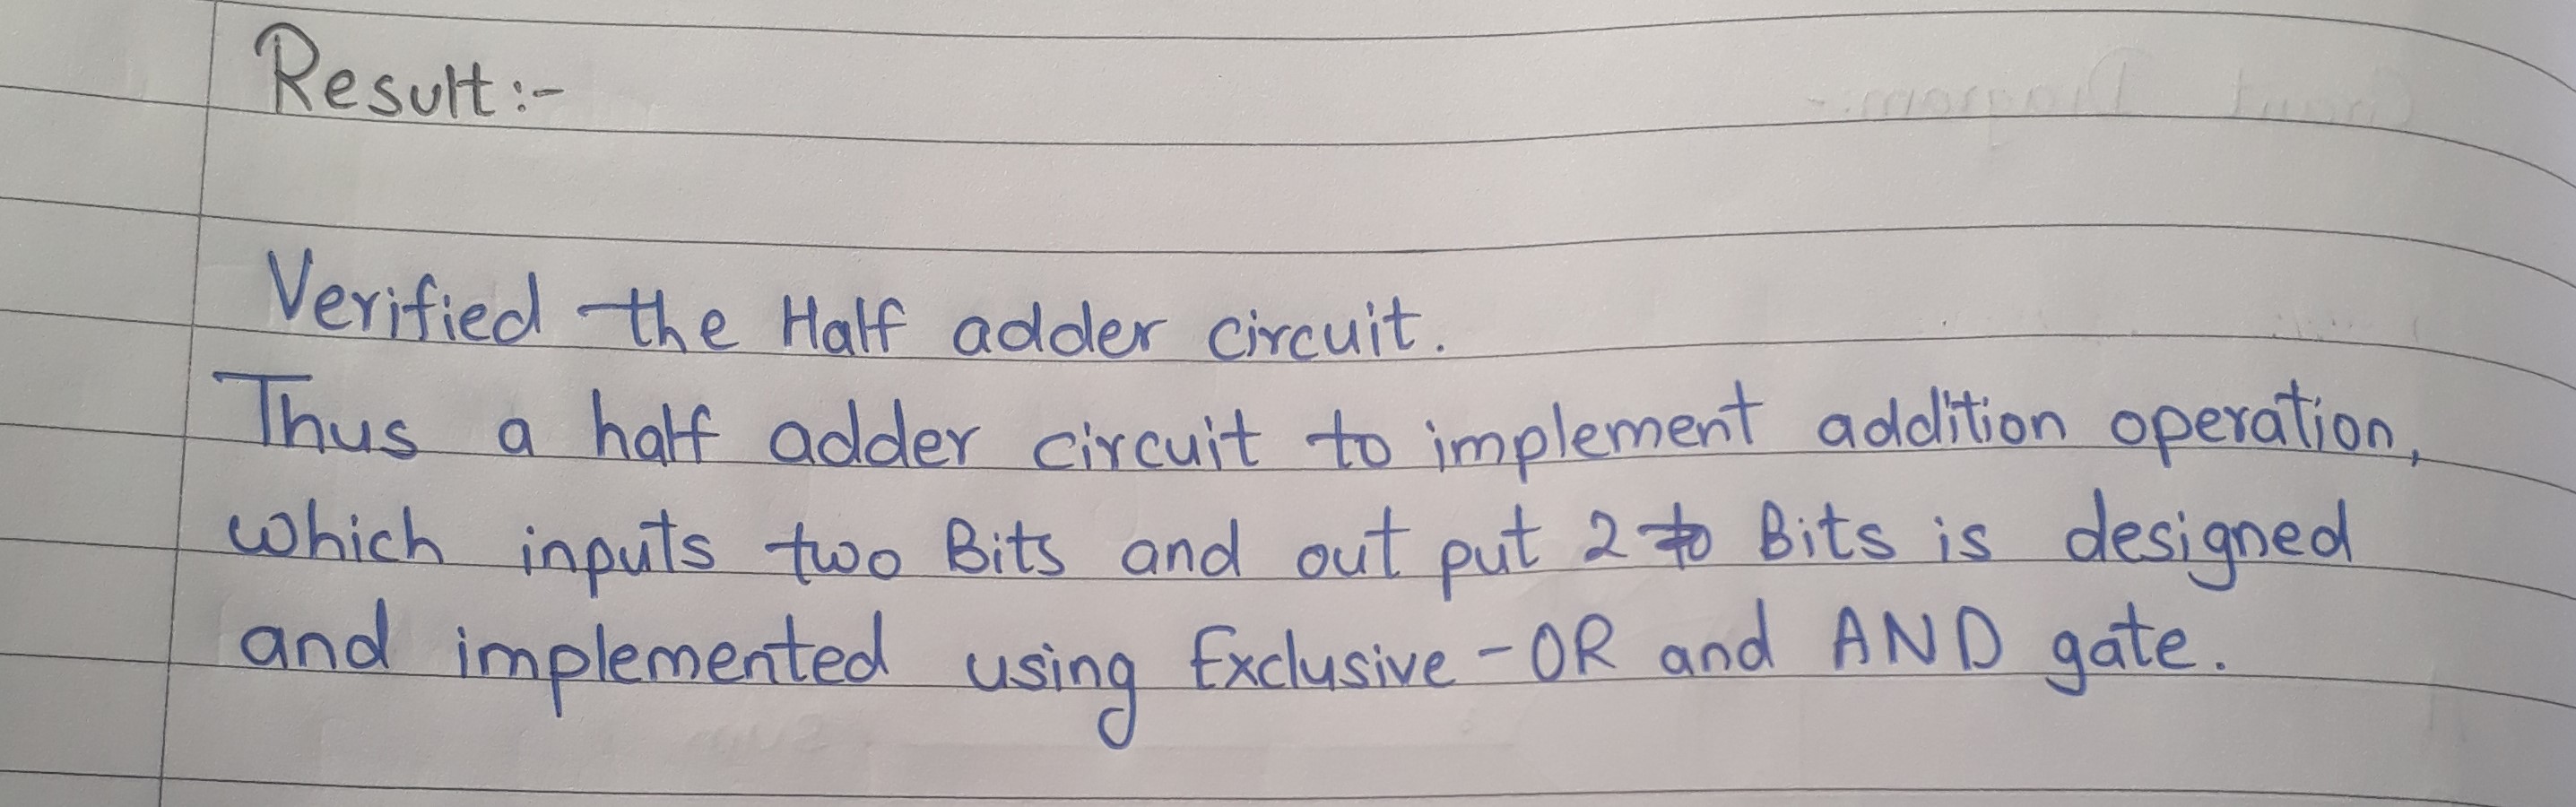 Result:-
Verified the Half adder circuit.
Thus a half adder circuit to implement addition operation,
which inputs two Bits and out put 2 Bits is designed
and implemented using Exclusive-OR and AND gate.